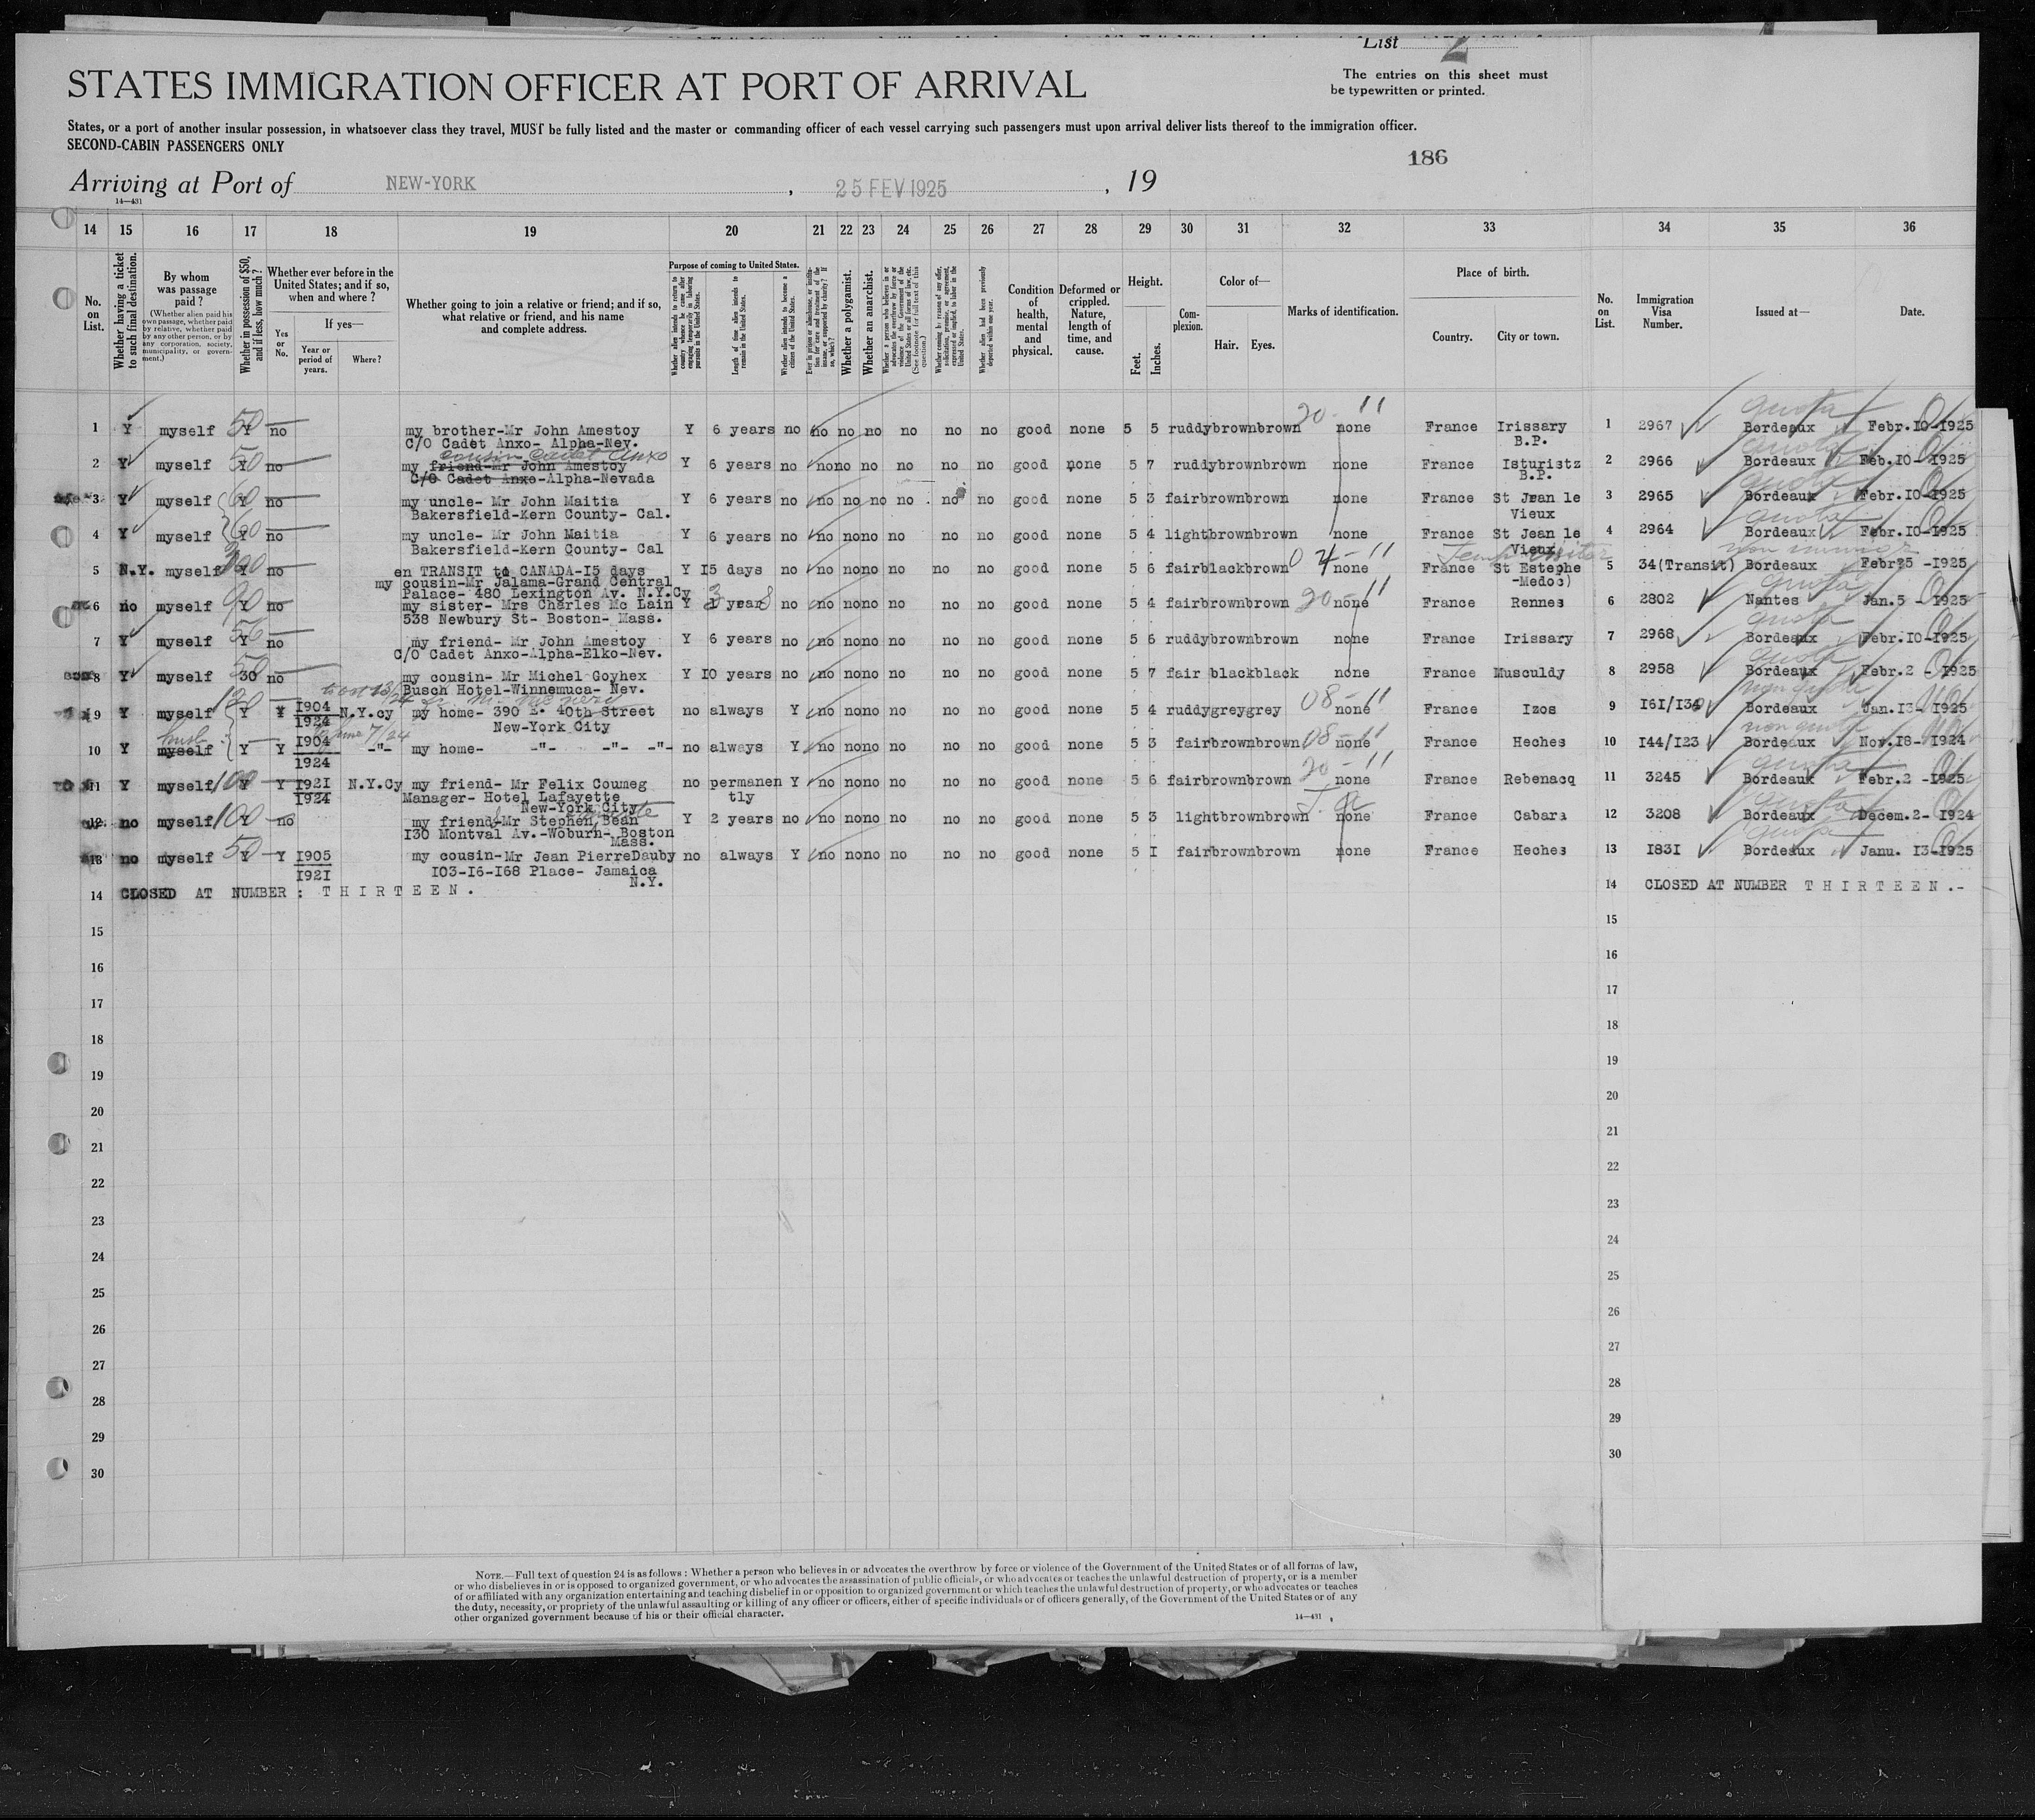 List 2
STATES IMMIGRATION OFFICER AT PORT OF ARRIVAL
The entries on this sheet must
be typewritten or printed.
States, or a port of another insular possession, in whatsoever class they travel, MUST be fully listed and the master or commanding officer of each vessel carrying such passengers must upon arrival deliver lists thereof to the immigration officer.
SECOND-CABIN PASSENGERS ONLY
186
Arriving at Port of NEW-YORK, 25 FEV 1925, 19
14—431
14 15 16 17 18 19 20 21 22 23 24 25 26 27 28 29 30 31 32 33 34 35 36
No. on List.
Whether having a ticket to such final destination.
By whom was passage paid?
(Whether alien paid his own passage, whether paid by relative, whether paid by any other person, or by any corporation, society, municipality, or government.)
Whether in possession of $50, and if less, how much?
Whether ever before in the United States; and if so, when and where?
Yes or No.
If yes—
Year or period of years.
Where?
Whether going to join a relative or friend; and if so, what relative or friend, and his name and complete address.
Purpose of coming to United States.
Whether alien intends to return to country whence he came after engaging temporarily in laboring pursuits in the United States.
Length of time alien intends to remain in the United States.
Whether alien intends to become a citizen of the United States.
Whether a polygamist.
Whether an anarchist.
Condition of health, mental and physical.
Deformed or crippled. Nature, length of time, and cause.
Height.
Feet. Inches.
Complexion.
Color of—
Hair. Eyes.
Marks of identification.
Place of birth.
Country. City or town.
No. on List.
Immigration Visa Number.
Issued at—
Date.
20-11 quota
1 Y myself 50 Y no my brother-Mr John Amestoy Y 6 years no no no no no no no good none 5 5 ruddy brown brown none France Irissary 1 2967 Bordeaux Febr.10-1925
C/O Cadet Anxo- Alpha-Nev. B.P.
cousin Cadet Anxo quota
2 Y myself 50 Y no my friend-Mr John Amestoy Y 6 years no no no no no no no good none 5 7 ruddy brown brown none France Isturistz 2 2966 Bordeaux Feb.10-1925
C/O Cadet Anxo-Alpha-Nevada B.P.
quota
3 Y myself 60 Y no my uncle- Mr John Maitia Y 6 years no no no no no no no good none 5 3 fair brown brown none France St Jean le 3 2965 Bordeaux Febr.10-1925
Bakersfield-Kern County- Cal. Vieux
quota
4 Y myself 60 Y no my uncle- Mr John Maitia Y 6 years no no no no no no no good none 5 4 light brown brown none France St Jean le 4 2964 Bordeaux Febr.10-1925
Bakersfield-Kern County- Cal Vieux
04-11 visitor non immigr
5 N.Y. myself Y no en TRANSIT to CANADA-15 days Y 15 days no no no no no no no good none 5 6 fair black brown none France St Estephe 5 34(Transit) Bordeaux Febr 5 -1925
my cousin-Mr Jalama-Grand Central -Medoc)
Palace- 480 Lexington Av. N.Y.Cy
quota
6 no myself 90 Y no my sister- Mrs Charles Mc Lain Y year no no no no no no no good none 5 4 fair brown brown 20-11 none France Rennes 6 2802 Nantes Jan.5 - 1925
538 Newbury St- Boston- Mass.
quota
7 Y myself Y no my friend- Mr John Amestoy Y 6 years no no no no no no no good none 5 6 ruddy brown brown none France Irissary 7 2968 Bordeaux Febr.10-1925
C/O Cadet Anxo-Alpha-Elko-Nev.
quota
8 Y myself 50 30 no my cousin- Mr Michel Goyhex Y 10 years no no no no no no no good none 5 7 fair black black none France Musculdy 8 2958 Bordeaux Febr.2 - 1925
Busch Hotel-Winnemuca- Nev.
08-11 non quota
9 Y myself 120 Y Y 1904 1924 N.Y.cy my home- 390 E. 40th Street no always Y no no no no no no good none 5 4 ruddy grey grey none France Izos 9 161/130 Bordeaux Jan.13- 1925
New-York City
husb June 7/24 08-11 non quota
10 Y myself Y Y 1904 1924 -"- my home- -"- -"- -"- no always Y no no no no no no good none 5 3 fair brown brown none France Heches 10 144/123 Bordeaux Nov.18- 1924
20-11 quota
11 Y myself 100 Y Y 1921 1924 N.Y.Cy my friend- Mr Felix Coumeg no permanently Y no no no no no no good none 5 6 fair brown brown none France Rebenacq 11 3245 Bordeaux Febr.2 -1925
Manager- Hotel Lafayette
New-York City
quota
12 no myself 100 Y no my friend-Mr Stephen Bean Y 2 years no no no no no no no good none 5 3 light brown brown none France Cabara 12 3208 Bordeaux Decem.2- 1924
130 Montval Av.-Woburn- Boston
Mass.
quota
13 no myself 50 Y Y 1905 1921 my cousin-Mr Jean Pierre Dauby no always Y no no no no no no good none 5 1 fair brown brown none France Heches 13 1831 Bordeaux Janu. 13-1925
103-16-168 Place- Jamaica
N.Y.
14 CLOSED AT NUMBER : THIRTEEN. 14 CLOSED AT NUMBER THIRTEEN.-
15 15
16 16
17 17
18 18
19 19
20 20
21 21
22 22
23 23
24 24
25 25
26 26
27 27
28 28
29 29
30 30
NOTE.—Full text of question 24 is as follows: Whether a person who believes in or advocates the overthrow by force or violence of the Government of the United States or of all forms of law,
or who disbelieves in or is opposed to organized government, or who advocates the assassination of public officials, or who advocates or teaches the unlawful destruction of property, or is a member
of or affiliated with any organization entertaining and teaching disbelief in or opposition to organized government or which teaches the unlawful destruction of property, or who advocates or teaches
the duty, necessity, or propriety of the unlawful assaulting or killing of any officer or officers, either of specific individuals or of officers generally, of the Government of the United States or of any
other organized government because of his or their official character.
14—431